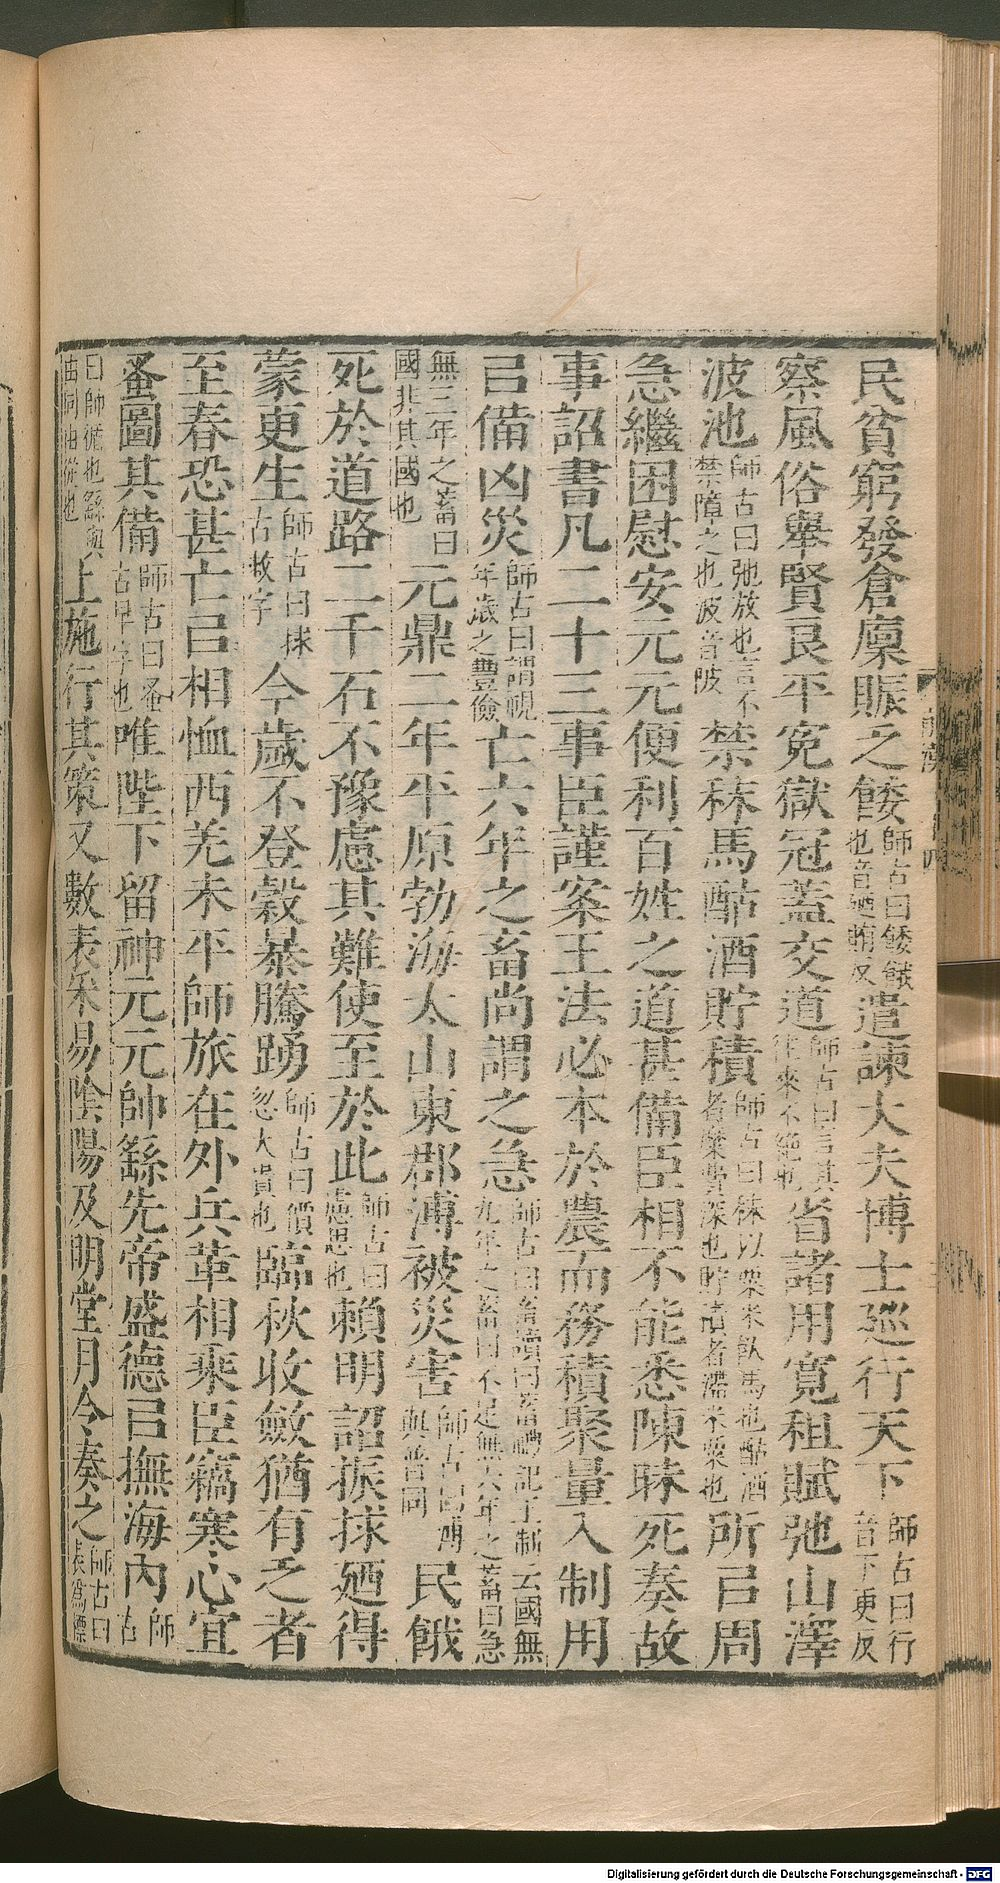 民貧窮發倉廩賑乏餧師古曰餧餓也音乃賄反遣諫大夫博士巡行天下師古曰行音下更反
察風俗舉賢良平冤獄冠蓋交道師古曰言其往來不絕也省諸用寬租賦弛山澤
波池師古曰弛放也言不禁障之也波音陂禁秣馬酤酒貯積師古曰秣以粟米飤馬也酤酒者糜費深也貯積者滯米粟也所㠯周
急繼困慰安元元便利百姓之道甚備臣相不能悉陳昧死奏故
事詔書凡二十三事臣謹案王法必本於農而務積聚量入制用
㠯備凶災師古曰謂視年歲之豐儉亡六年之畜尚謂之急師古曰畜讀曰蓄禮記王制云國無九年之蓄曰不足無六年之蓄曰急
無三年之蓄曰國非其國也元鼎二年平原勃海太山東郡溥被災害師古曰溥與普同民餓
死於道路二千石不豫慮其難使至於此師古曰慮思也賴明詔振捄廼得
蒙更生師古曰捄古救字今歲不登穀暴騰踴師古曰價忽大貴也臨秋收斂猶有乏者
至春恐甚亡㠯相恤西羌未平師旅在外兵革相乘臣竊寒心宜
蚤圖其備師古曰蚤古早字也唯陛下留神元元帥繇先帝盛德㠯撫海內師古
曰帥循也繇與由同由從也上施行其策又數表采易陰陽及明堂月令奏之師古曰表爲標
前漢
四
Digitalisierung gefördert durch die Deutsche Forschungsgemeinschaft - DFG